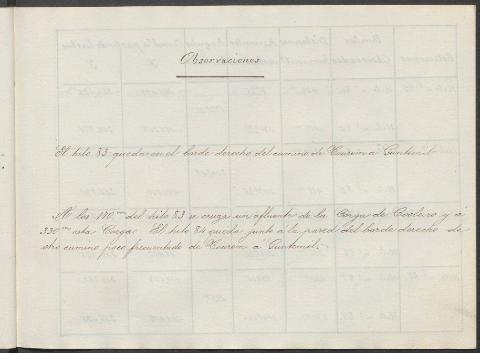 Observaciones
El hito 83 queda en el borde derecho del camino de Tourem a Guntimil.
A los 170 ms del hito 83 se cruza un afluente de la Corga de Cocleiro y á
330 ms esta Corga. El hito 84 queda junto á la pared del borde derecho de
otro camino poco frecuentado de Tourem á Guntimil.